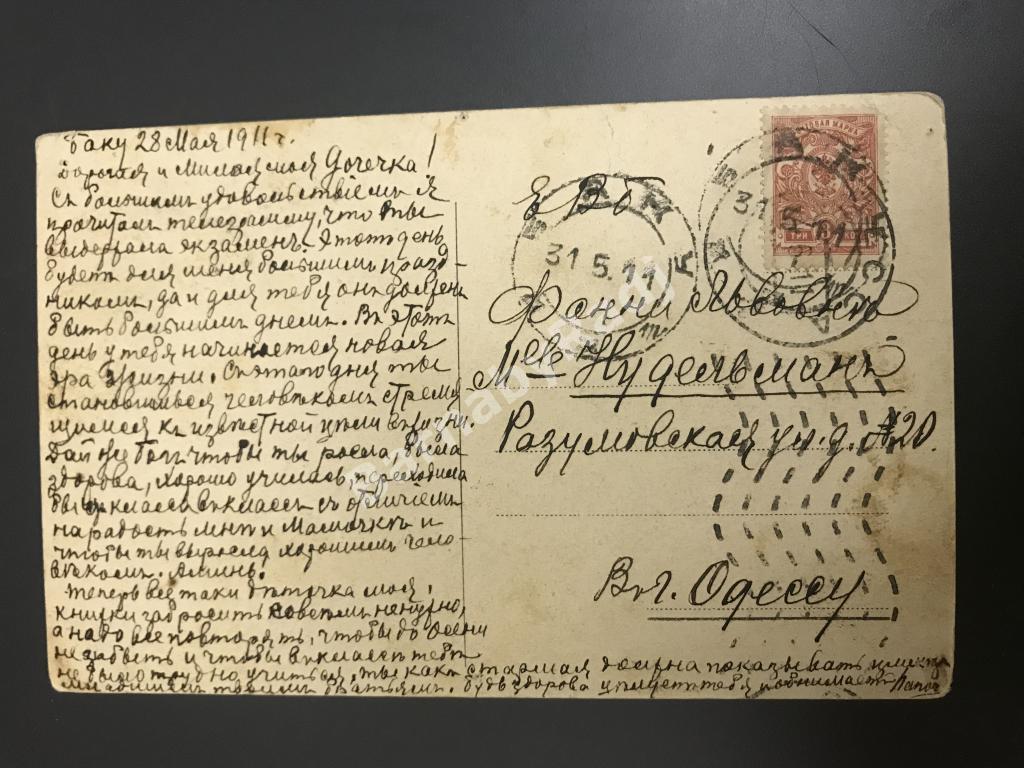 Баку 28 Мая 1911 г.
Дорогая и Милая моя Дочечка!
Съ большимъ удовольствіемъ я
прочиталъ телеграмму, что ты
выдержала экзаменъ. Этотъ день
будетъ для меня большимъ празд-
никомъ, да и для тебя онъ долженъ
быть большимъ днемъ. Въ этотъ
день у тебя начинается новая
эра жизни. Съ этаго дня ты
становишься человѣкомъ стремя
щимся къ извѣстной цѣли въ жизни.
Дай же Богъ чтобы ты росла, была
здорова, хорошо училась, переходила
бы изъ класса въ классъ съ отличіемъ
на радость мнѣ и Мамочкѣ и
чтобы ты выросла хорошимъ чело-
вѣкомъ. Аминь.
Теперь все таки дѣточка моя,
книжки забросить совсѣмъ не нужно,
а надо все повторять, чтобы до осени
не забыть и чтобы въ классѣ тебѣ
не было трудно учиться, ты какъ старшая должна показывать примѣръ
младшимъ твоимъ братьямъ. Будь здорова цѣлуетъ тебя и обнимаетъ Папа
ПОЧТОВАЯ МАРКА
ТРИ
31.5.11
31.5.11
ЕВБ
Фанни Львовнѣ
Мелле Нудельманъ
Разумовская ул. д. №20
Въ г. Одессу